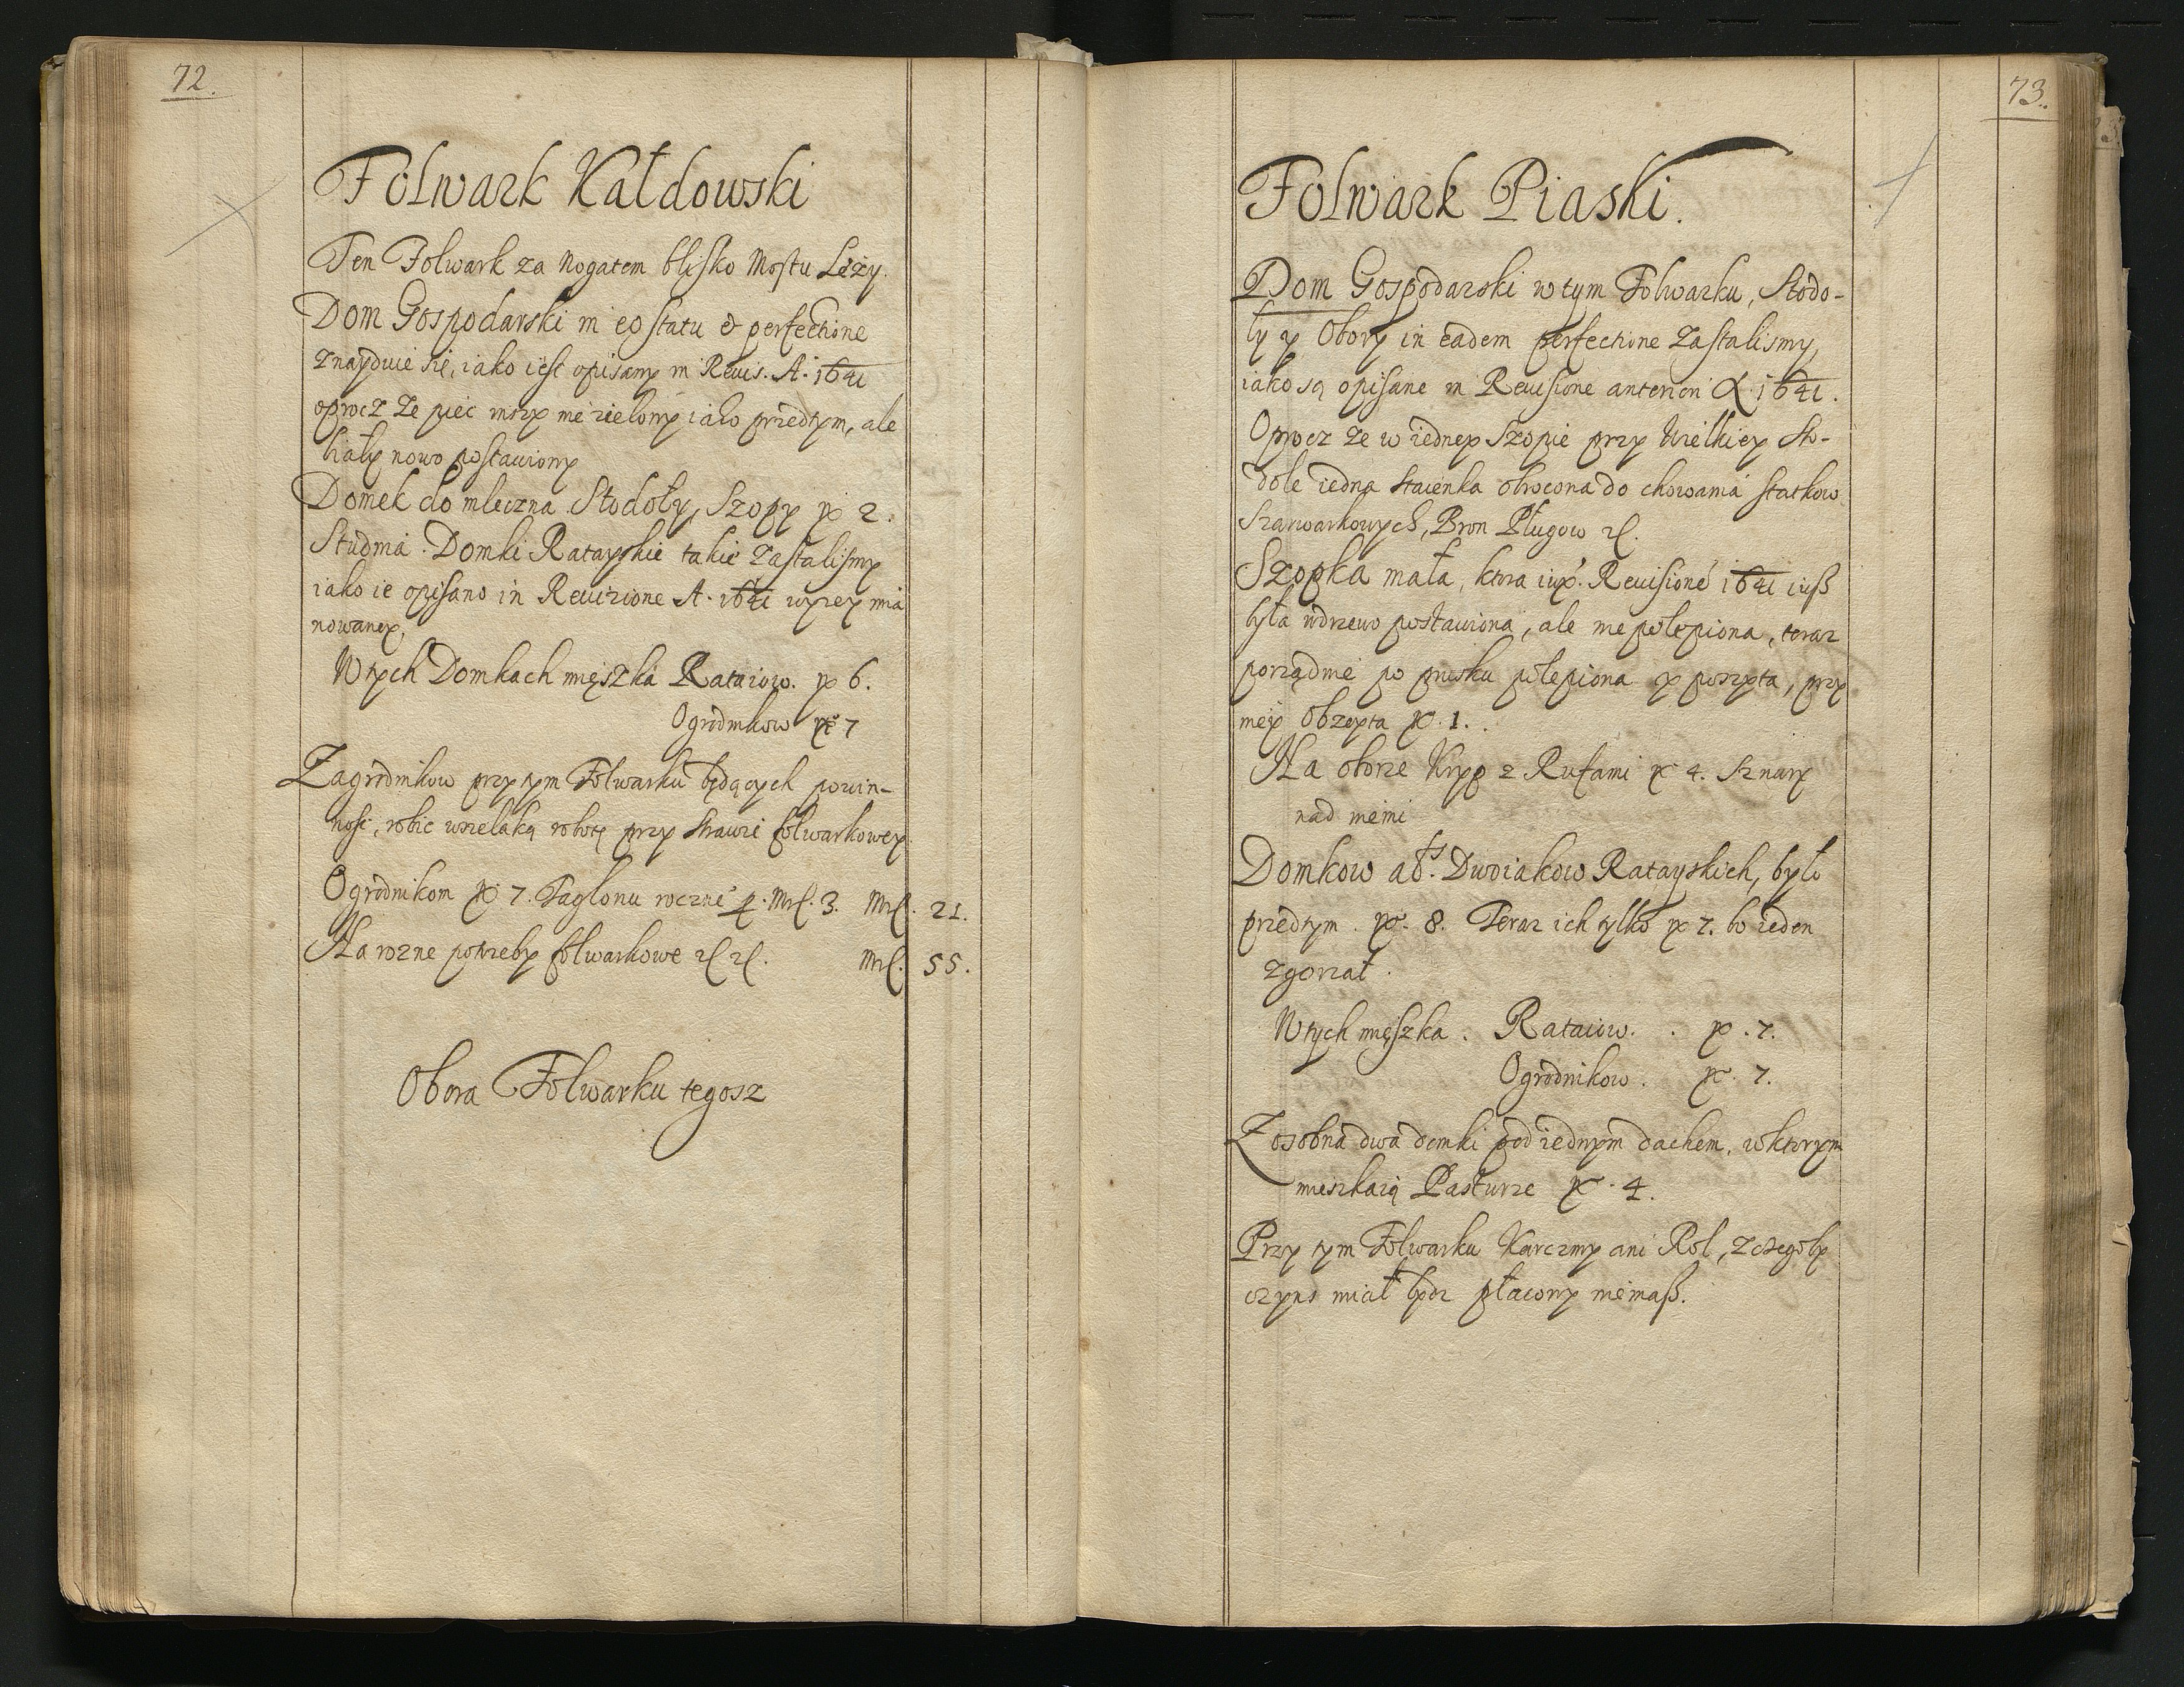 72.
Folwark Kałdowski
Ten Folwark za Nogatem blisko Mostu Leży.
Dom Gospodarski in eo statu & perfectione
znayduie się, iako iest opisany in Reuis. A. 1641
oprocz że piec w nie zielony iako przedtym, ale
biały nowo postawiony
Domek do mleczna Stodoły, Szopy № 2.
Studnia. Domki Rataÿskie takie zastalismy
iako ie opisano in Reuizione A. 1641 wyzey mia
nowaney.
W tych Domkach mięszka Rataiow. № 6.
Ogrodnikow № 7
Zagrodnikow przy tym Folwarku będących powin-
nosc, robic wszelaką robotę przy strawie folwarkowey
Ogrodnikom № 7. Taglonu roczne Mrl. 3. Mrl. 21.
Na rozne potrzeby folwarkowe Mrl. 55.
Obora Folwarku tegosz
73.
Folwark Piaski.
Dom Gospodarski w tym Folwarku, Stodo-
ły y Obory in eadem perfectione zastalismy,
iako są opisane in Reuisione anteriori 1641.
Oprocz że w iedney Szopie przy Wielkiey Sto-
dole iedna staienka obrocona do chowania statkow
Szarwarkowych, Bron Pługow
Szopka mała, ktora iux. Reuisione 1641 iuß
była w drzewo postawiona, ale nie polepiona, teraz
porządnie po prusku polepiona y poszyta, przy
niey Obzeyta № 1.
Na oborze Kryp z Rufami № 4. Sznary
nad niemi
Domkow Dwoiakow Rataÿskich, było
przedtym № 8. Teraz ich tylko № 7. bo ieden
zgorzał.
W tych mięszka. Rataiow. № 7.
Ogrodnikow. № 7.
Zosobna dwa domki pod iednym dachem, w ktorym
mieszkaią Pasturze № 4.
Przy tym Folwarku Karczmy ani Rol, z czegoby
czyns miał bydz płacony niemaß.